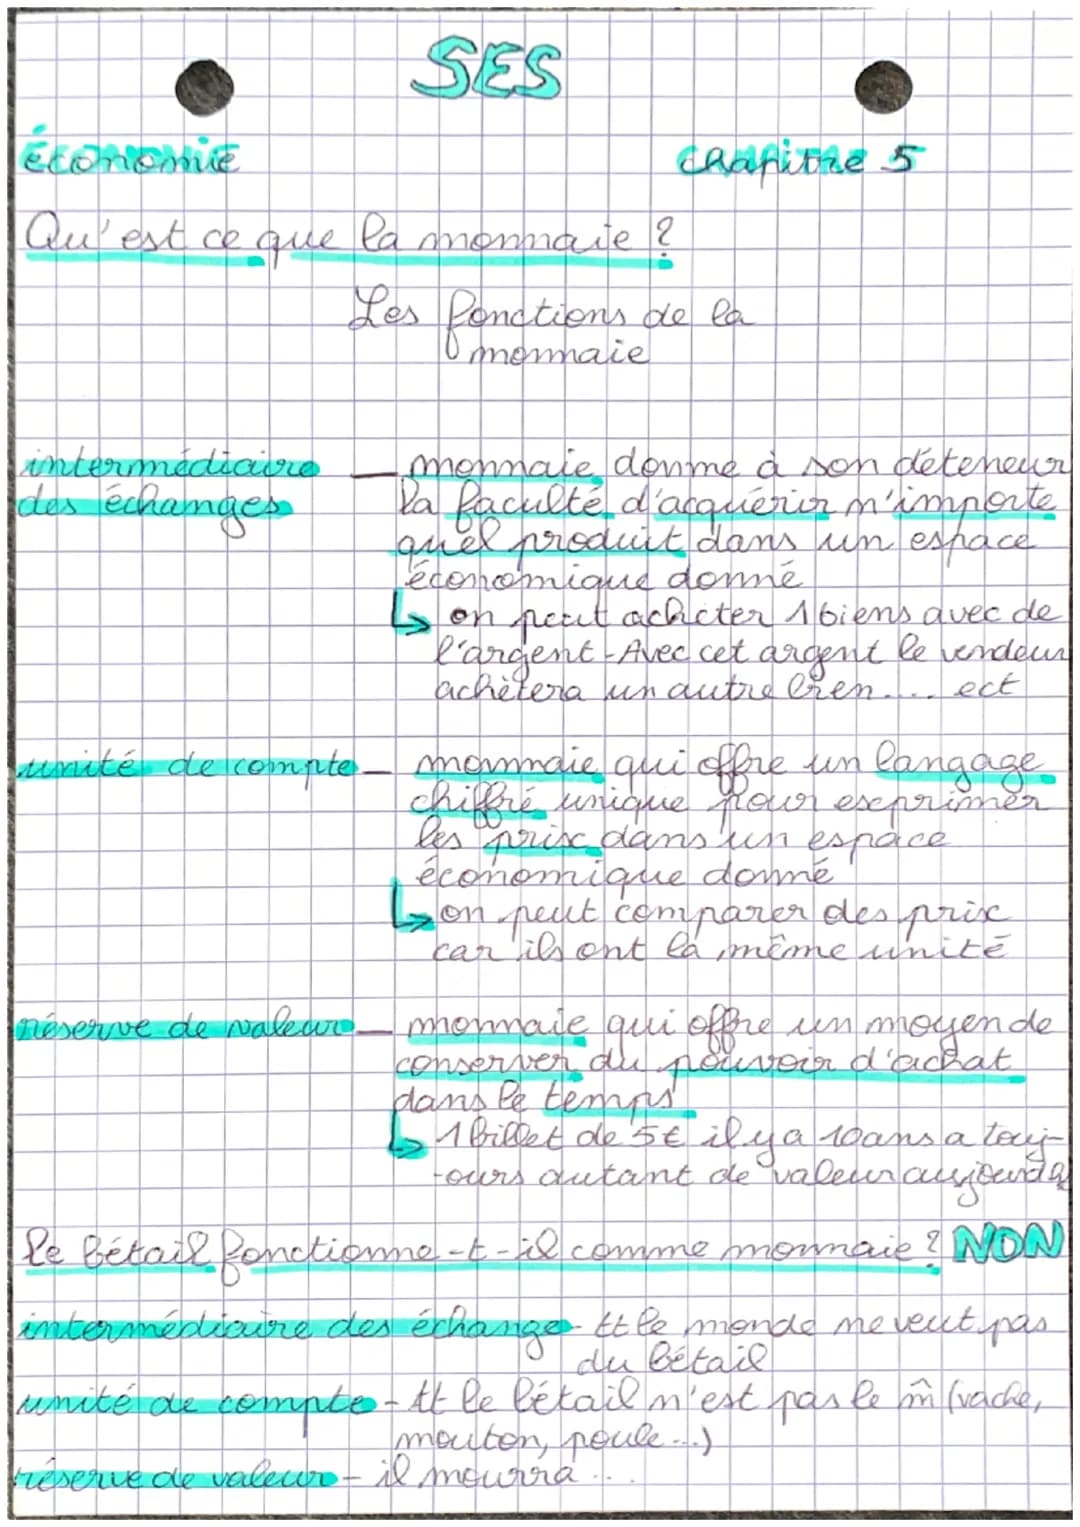 SES
économie
chapitre 5
Qu'est ce que la monnaie ?
Les fonctions de la
monnaie
intermédiaire — monnaie donne à son déteneur
des échanges la faculté d'acquérir n'importe
quel produit dans un espace
économique donné
↳ on peut acheter 1 biens avec de
l'argent - Avec cet argent le vendeur
achètera un autre bien.... ect
unité de compte — monnaie qui offre un langage
chiffré unique pour exprimer
les prix dans un espace
économique donné
↳ on peut comparer des prix
car ils ont la même unité
réserve de valeur — monnaie qui offre un moyen de
conserver du pouvoir d'achat
dans le temps
↳ 1 billet de 5€ il y a 10ans a touj-
-ours autant de valeur
le bétail fonctionne-t-il comme monnaie ? NON
intermédiaire des échange - tt le monde ne veut pas
du bétail
unité de compte - tt le bétail n'est pas le m̂ (vache,
mouton, poule...)
réserve de valeur - il mourra....